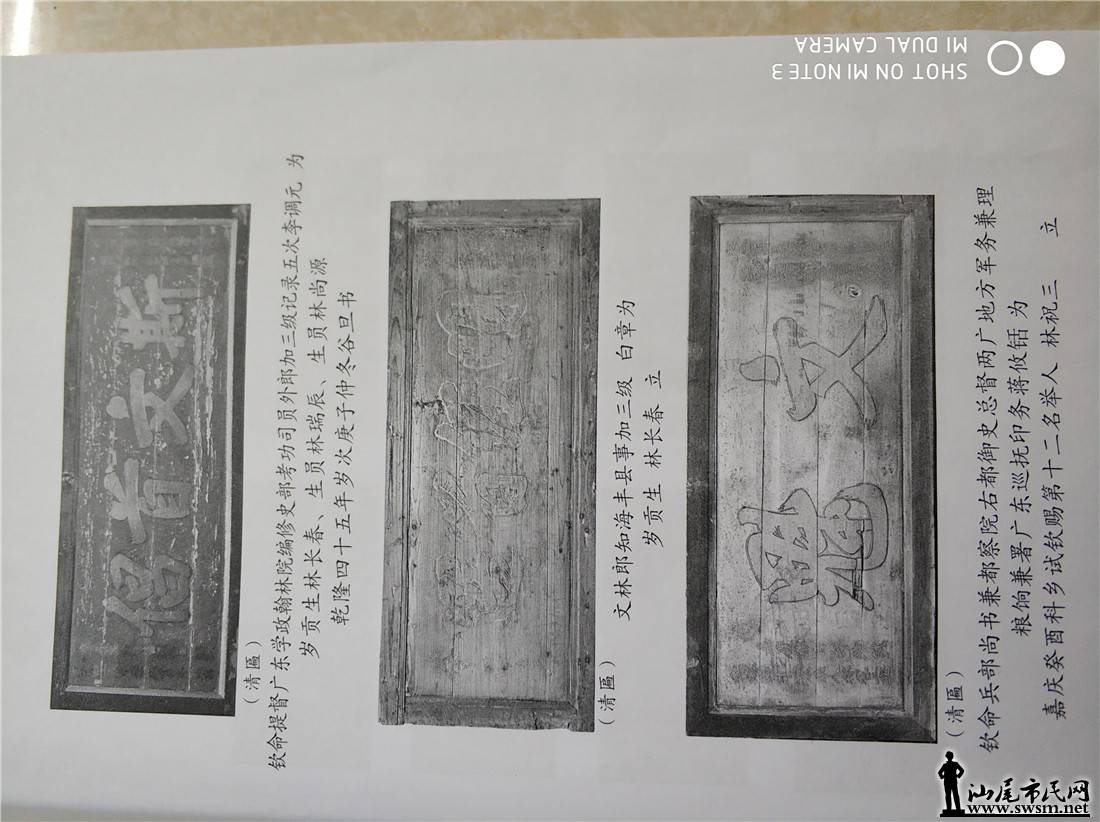 文斯
(清匾)
钦命提督广东学政翰林院编修史部考功司员外郎加三级记录五次李调元 为
岁贡生林长春、生员林瑞辰、生员林尚源
乾隆四十五年岁次庚子仲冬谷旦书
(清匾)
文林郎知海丰县事加三级 白章为
岁贡生 林长春 立
文
(清匾)
钦命兵部尚书兼都察院右都御史总督两广地方军务兼理
粮饷兼署广东巡抚印务蒋攸铦为
嘉庆癸酉科乡试钦赐第十二名举人 林祝三 立
SHOT ON MI NOTE 3
MI DUAL CAMERA
汕尾市民网
www.swsm.net